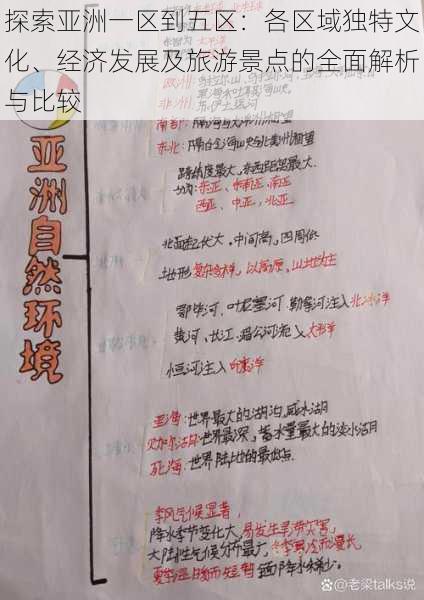 探索亚洲一区到五区：各区域独特文
化、经济发展及旅游景点的全面解析
与比较
亚洲自然环境
东北：隔白令海峡与北美洲相望
跨纬度最大，东西距离最大.
分为：东亚、东南亚、南亚
西亚、中亚、北亚
地形复杂多样，以高原、山地为主
鄂毕河、叶尼塞河、勒拿河注入北冰洋
黄河、长江、湄公河流入太平洋
恒河注入印度洋
里海：世界最大的湖泊，咸水湖
贝加尔湖：世界最深，蓄水量最大的淡水湖
死海：世界陆地的最低点.
季风气候显著，
降水季节变化大，易发生旱涝灾害，
大陆性气候分布最广，冬季寒冷而漫长
夏季温暖而短暂
@老梁talks说